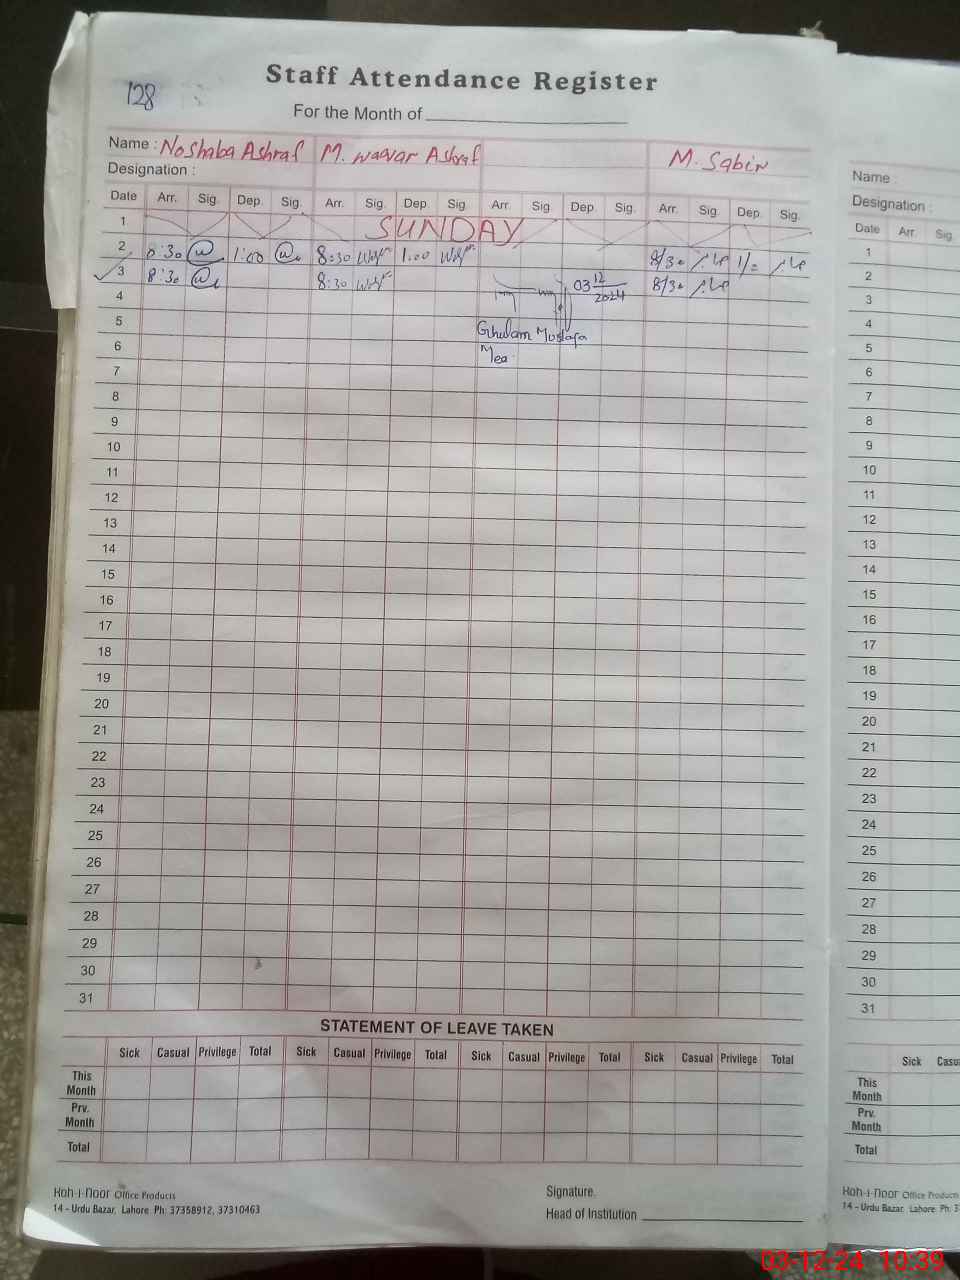 Staff Attendance Register
128
For the Month of
Name : Noshaba Ashraf M. Waqar Ashraf M. Sabir
Designation :
Date Arr. Sig. Dep. Sig. Arr. Sig. Dep. Sig. Arr. Sig. Dep. Sig. Arr. Sig. Dep. Sig.
1 SUNDAY
2 8:30 1:00 8:30 1:00 8/30 صابر 1/= صابر
3 8:30 8:30 03 12 2024 8/30 صابر
4
5 Ghulam Mustafa
6 Mea
7
8
9
10
11
12
13
14
15
16
17
18
19
20
21
22
23
24
25
26
27
28
29
30
31
STATEMENT OF LEAVE TAKEN
Sick Casual Privilege Total Sick Casual Privilege Total Sick Casual Privilege Total Sick Casual Privilege Total
This Month
Prv. Month
Total
Koh-i-noor Office Products
14 - Urdu Bazar, Lahore. Ph: 37358912, 37310463
Signature.
Head of Institution
Name :
Designation :
Date Arr. Sig.
1
2
3
4
5
6
7
8
9
10
11
12
13
14
15
16
17
18
19
20
21
22
23
24
25
26
27
28
29
30
31
Sick
This Month
Prv. Month
Total
Koh-i-noor Office Products
14 - Urdu Bazar, Lahore. Ph:
03-12-24 10:39